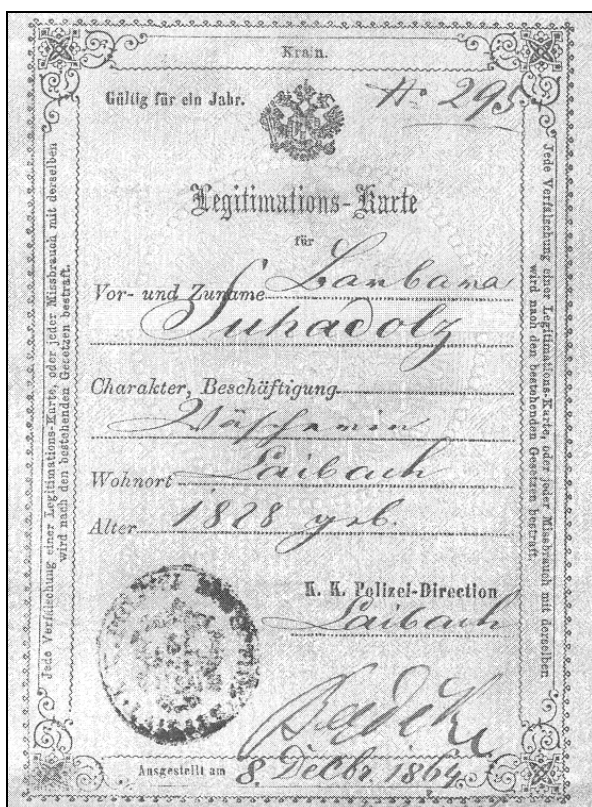 Krain.
Gültig für ein Jahr.
No. 295
Legitimations-Karte
für
Vor- und Zuname Barbara
Suhadolz
Charakter, Beschäftigung
Wäscherin
Wohnort Laibach
Alter 1828 geb.
K. K. Polizei-Direction
Laibach
Ausgestellt am 8. Decbr. 1864
Jede Verfälschung einer Legitimations-Karte, oder jeder Missbrauch mit derselben
wird nach den bestehenden Gesetzen bestraft.
Jede Verfälschung einer Legitimations-Karte, oder jeder Missbrauch mit derselben
wird nach den bestehenden Gesetzen bestraft.